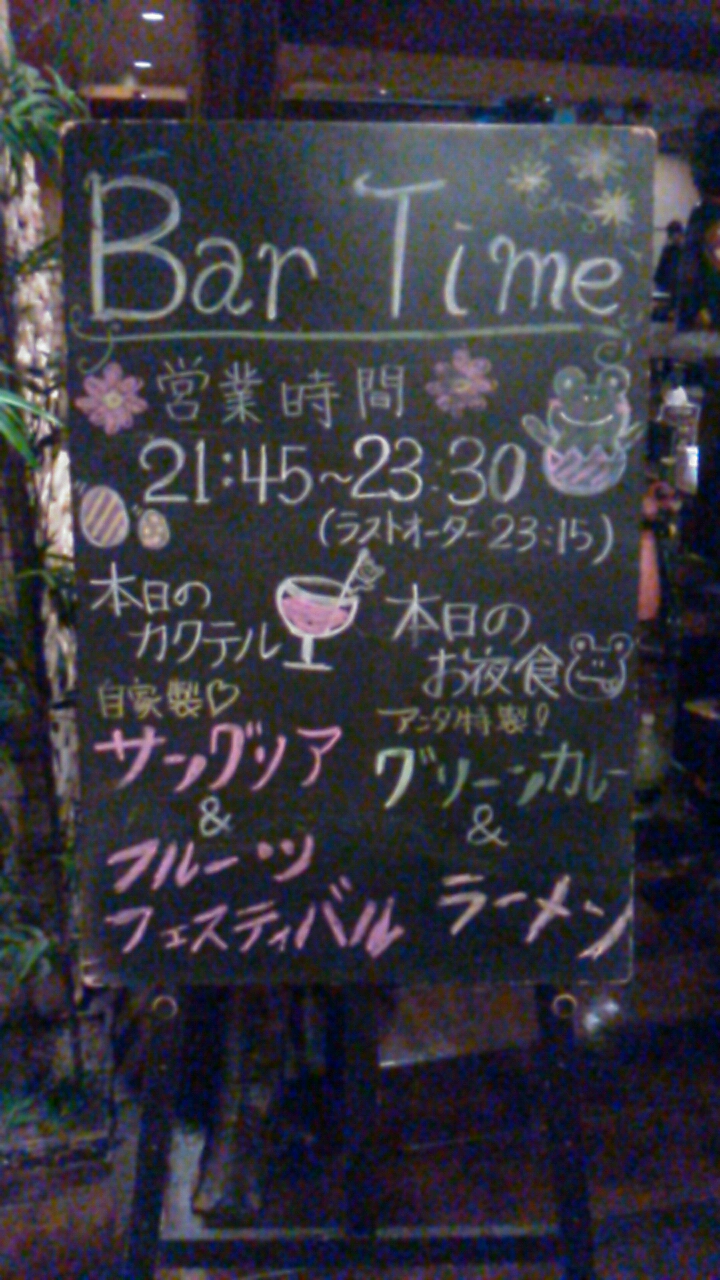 Bar Time
営業時間
21:45~23:30
(ラストオーダー 23:15)
本日の
カクテル
自家製♡
サングリア
&
フルーツ
フェスティバル
本日の
お夜食
アンダ特製!
グリーンカレー
&
ラーメン